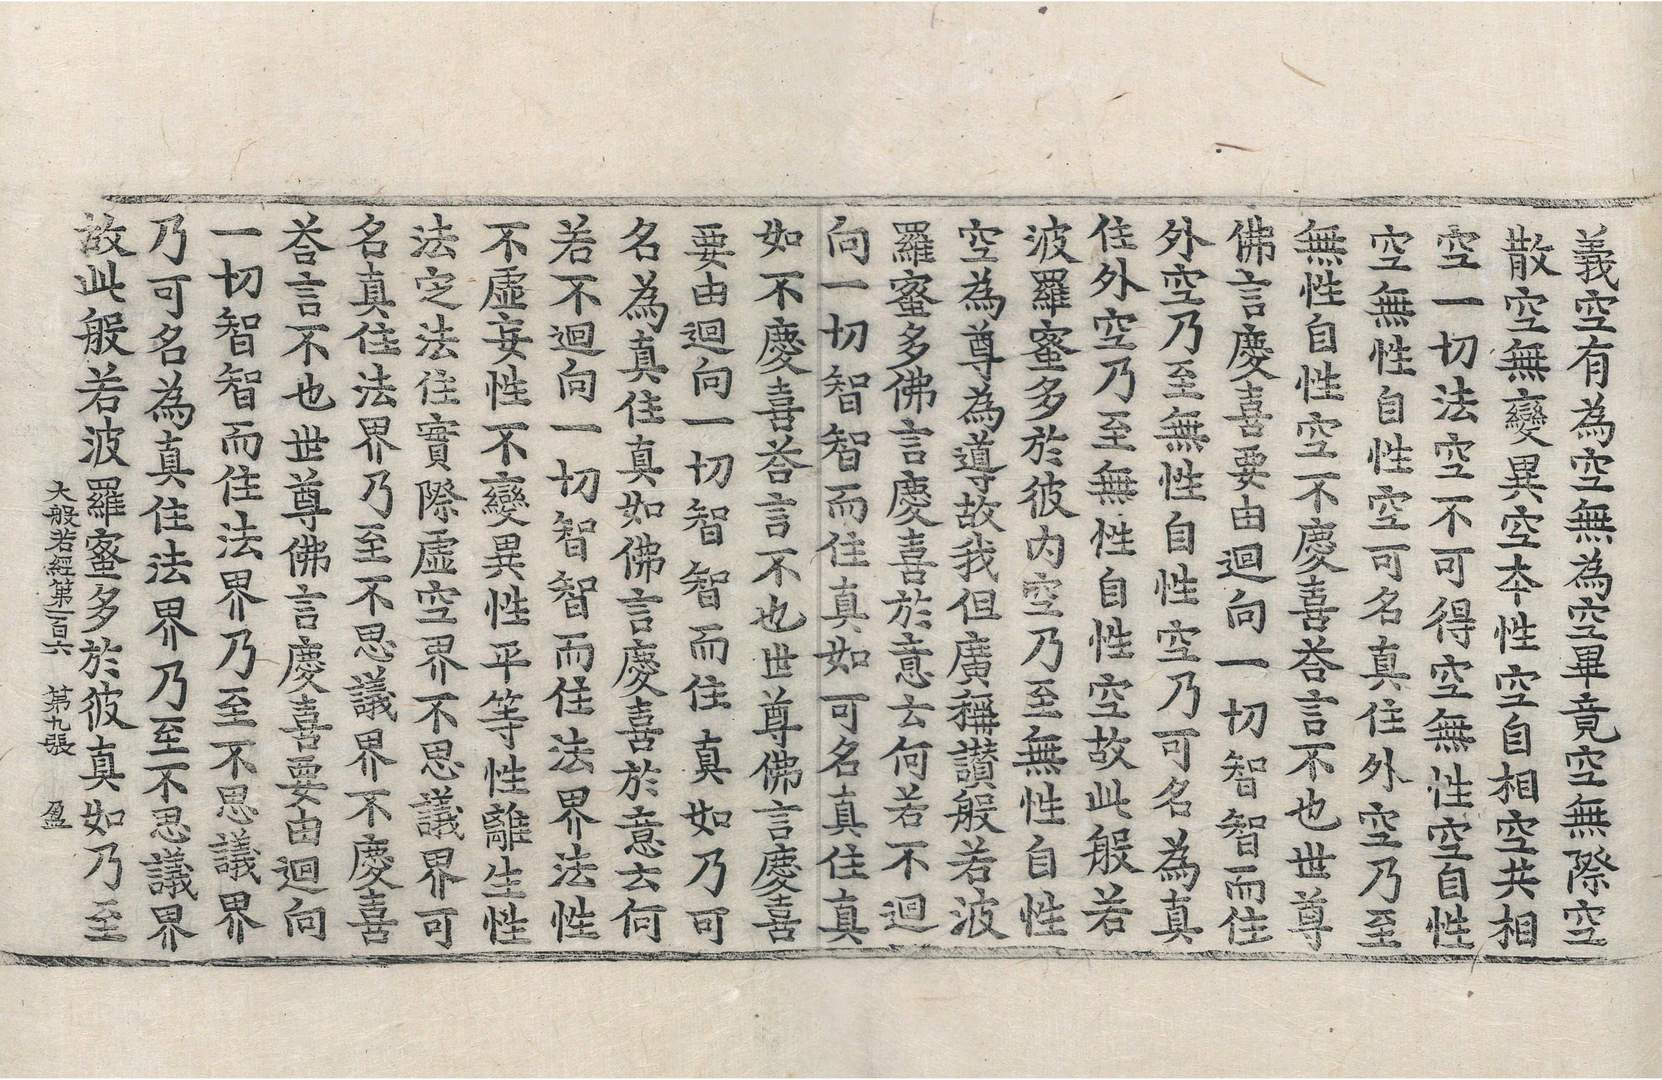 義空有為空無為空畢竟空無際空
散空無變異空本性空自相空共相
空一切法空不可得空無性空自性
空無性自性空可名真住外空乃至
無性自性空不慶喜荅言不也世尊
佛言慶喜要由迴向一切智智而住
外空乃至無性自性空乃可名為真
住外空乃至無性自性空故此般若
波羅蜜多於彼內空乃至無性自性
空為尊為導故我但廣稱讃般若波
羅蜜多佛言慶喜於意云何若不迴
向一切智智而住真如可名真住真
如不慶喜荅言不也世尊佛言慶喜
要由迴向一切智智而住真如乃可
名為真住真如佛言慶喜於意云何
若不迴向一切智智而住法界法性
不虛妄性不變異性平等性離生性
法定法住實際虛空界不思議界可
名真住法界乃至不思議界不慶喜
荅言不也世尊佛言慶喜要由迴向
一切智智而住法界乃至不思議界
乃可名為真住法界乃至不思議界
故此般若波羅蜜多於彼真如乃至
大般若經第一百六 第九張 盈